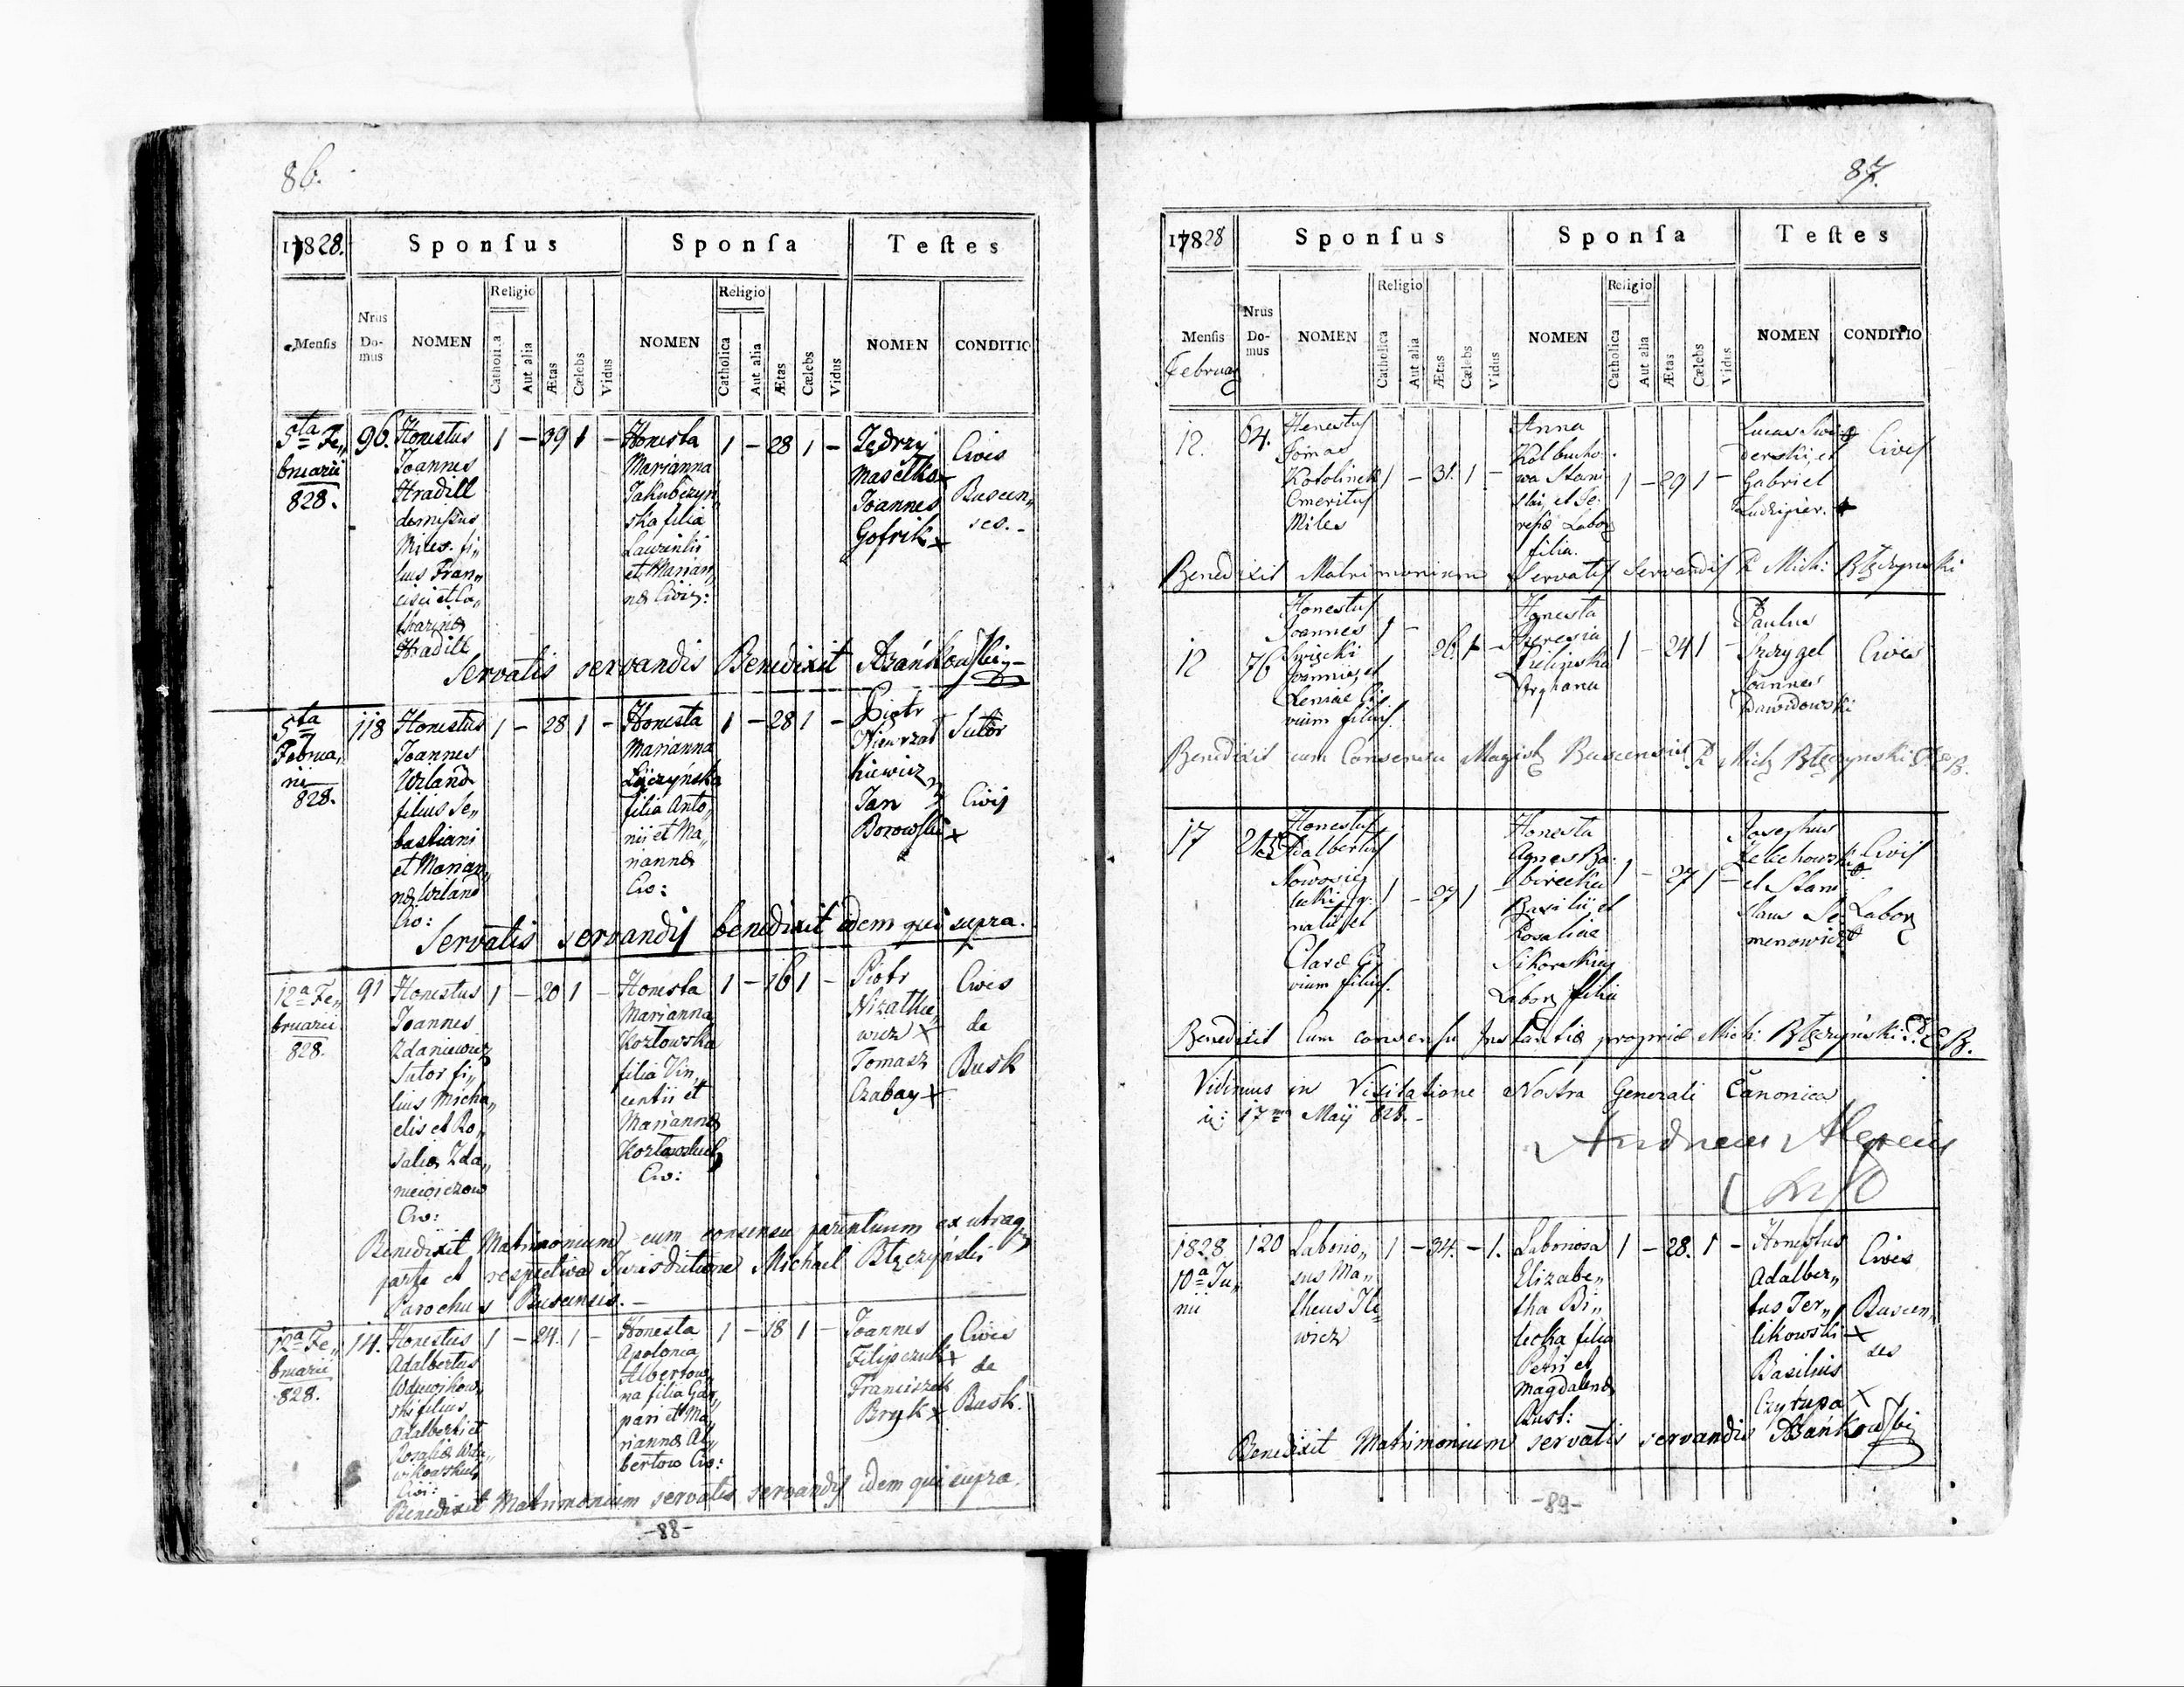 86.
17828.
Sponſus
Sponſa
Teſtes
Menſis
Nrus Do-mus
NOMEN
Religio
Catholica
Aut alia
Ætas
Cælebs
Vidus
NOMEN
Religio
Catholica
Aut alia
Ætas
Cælebs
Vidus
NOMEN
CONDITIO
5ta Fe„
bruarii
828.
96.
Honestus
Joannes
Hradill
demissus
Miles. fi„
lius Fran„
cisci et Ca„
tharinæ
Hradill
1 – 39 1 –
Honesta
Marianna
Jakubczyn
ska filia
Laurentii
et Marian„
næ Civiz:
1 – 28 1 –
Jędrzy
Masełko x
Joannes
Gofrik x
Cives
Buscen„
ses. –
Servatis servandis Benedixit
5ta
Februa,
rii
828.
118
Honestus
Joannes
Wrland
filius Se„
bastiani
et Marian„
næ Wrland
Civ:
1 – 28 1 –
Honesta
Marianna
filia Anto„
nii et Ma„
riannæ
Civ:
1 – 28 1 –
Piotr
kiewicz
Jan
Borowski x
Sutor
Civis
Servatis servandis benedixit idem qui supra.
12a Fe„
bruarii
828.
91
Honestus
Joannes
Zdaniewicz
Sutor fi„
lius Micha„
elis et Ro„
saliæ Zda„
niewiczow
Civ:
1 – 20 1 –
Honesta
Marianna
Kozłowska
filia Vin„
centii et
Mariannæ
Kozłowskich
Civ:
1 – 16 1 –
Piotr
wicz x
Tomasz
Czabay x
Cives
de
Busk
Benedixit Matrimonium cum consensu parentuum ex utraq
parte et respectiva Jurisdictione Michael Błęczyński
Parochus Buscensis. –
12a Fe„
bruarii
828.
14.
Honestus
Adalbertus
Wdowikow„
ski filius
Adalberti et
Rosaliæ Wdo„
wikowskich
Civi:
1 – 24. 1 –
Honesta
Apolonia
Albertow„
na filia Gas„
pari et Ma„
riannæ Al„
bertow Civ:
1 – 18 1 –
Joannes
Filipczuk x
Franciszek
Bryk x
Cives
de
Busk.
Benedixit Matrimonium servatis servandis idem qui supra.
-88-
87.
17828
Sponſus
Sponſa
Teſtes
Menſis
Februar
Nrus Do-mus
NOMEN
Religio
Catholica
Aut alia
Ætas
Cælebs
Vidus
NOMEN
Religio
Catholica
Aut alia
Ætas
Cælebs
Vidus
NOMEN
CONDITIO
12.
64.
Honestus
Tomas
Kotolinek
Emeritus
Miles
1 – 31. 1 –
Anna
wa Stani
slai, et Te
resiæ Labor
filia.
1 – 29 1 –
Lucas Swi
derski, et
Gabriel
Cives
Benedixit Matrimonium Servatis Servandis P. Mich: Błęczynski
12
76
Honestus
Joannes
Swięcki
Joannis, et
Xeniæ Ci
vium filius.
1 – 26. 1 –
Honesta
Theresia
Zielinska
Orphana
1 – 24 1 –
Paulus
Joannes
Dawidowski
Cives
Benedixit cum Consensu Magistr Buscensis P. Mich Błęczynski P.E.B.
17
Honestus
Adalbertus
Nowosie
lecki, Ig:
natii et
Claræ Ci
vium filius.
1 – 27 1
Honesta
Agnes Ba:
birecka
Basilii et
Rosaliæ
Sikorskich
Labor filia
1 – 27 1 –
Josephus
Zelichowski
et Stani
slaus Se
menowicz
Civis
Labor
Benedixit Cum consensu Instantiæ propriæ Mich: Błęczyński P.E.B.
Vidimus in Visitatione Nostra Generali Canonica
17ma Maij 828. –
1828
10a Ju„
nii
120
Laborio„
sus Ma„
theus Ili
wicz
1 – 34. – 1.
Laboriosa
Elizabe„
tha Bi„
lecka filia
Petri et
Magdalenæ
Rust:
1 – 28. 1 –
Honestus
Adalber„
tus Ter„
likowski x
Basilius
Czyrupa x
Cives
Buscen„
ses
Benedixit Matrimonium servatis servandis
-89-